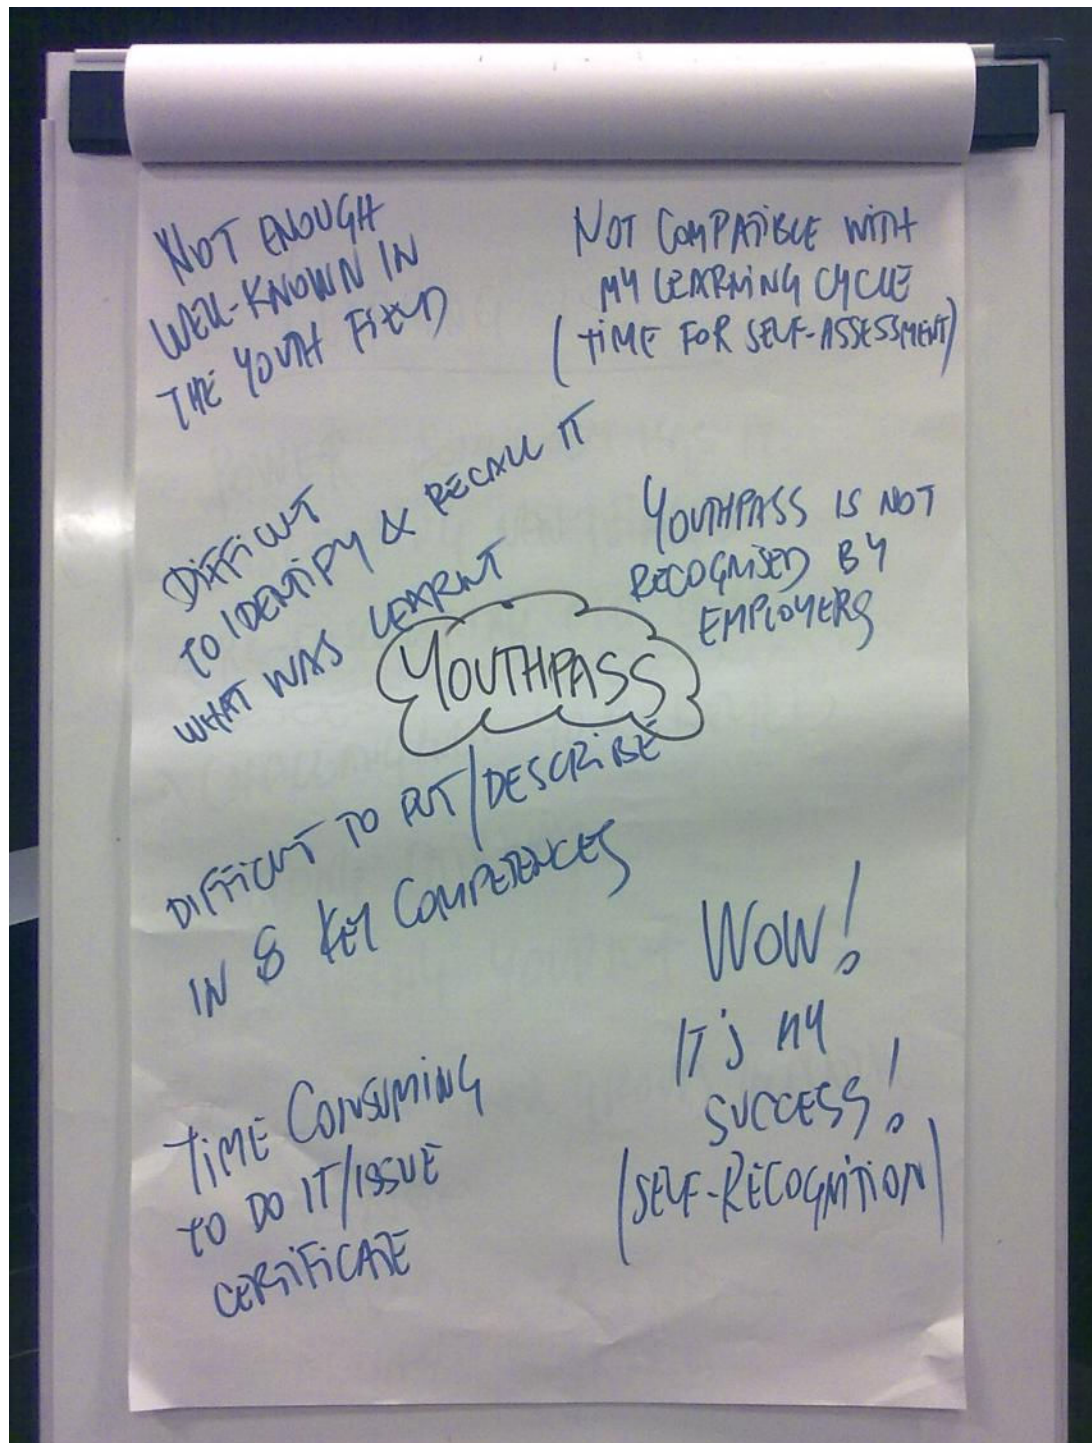 NOT ENOUGH
WELL-KNOWN IN
THE YOUTH FIELD
NOT COMPATIBLE WITH
MY LEARNING CYCLE
(TIME FOR SELF-ASSESSMENT)
DIFFICULT
TO IDENTIFY & RECALL IT
WHAT WAS LEARNT
YOUTHPASS IS NOT
RECOGNISED BY
EMPLOYERS
YOUTHPASS
DIFFICULT TO PUT/DESCRIBE
IN 8 KEY COMPETENCES
WOW!
IT'S MY
SUCCESS!
(SELF-RECOGNITION)
TIME CONSUMING
TO DO IT/ISSUE
CERTIFICATE